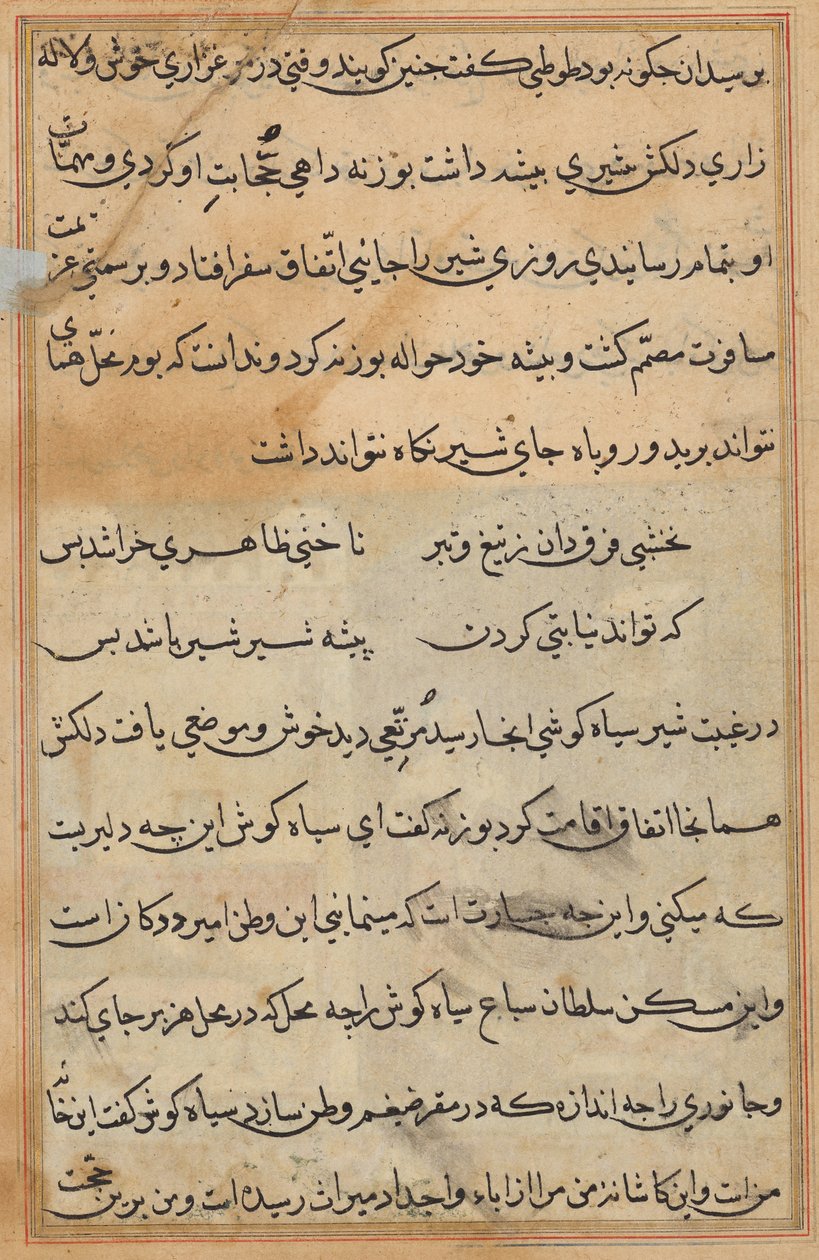 برسیدان جکونه بود طوطی کفت جنین کویند وقتی در مرغزاری خوش و لاله
زاری دلکش شیری بیشه داشت بوزنه داهی حُجّابتِ او کردی و مهمّات
او بتمام رسانیدی روزی شیر را جائی اتّفاق سفر افتاد و بر سمتی عزیمت
مسافرت مصمّم کشت و بیشه خود حواله بوزنه کرد و ندانست که بوم محلّ همای
نتواند برید و روباه جای شیر نکاه نتواند داشت
نخشبی فرق دان ز تیغ و تبر ناخنی ظاهری خراشد بس
که تواند نیابتی کردن پیشه شیر شیر باشد بس
در غیبت شیر سیاه کوشی انجا رسید مُرتّعی دید خوش و موضعی یافت دلکش
همانجا اتفاق اقامت کرد بوزنه کفت ای سیاه کوش این چه دلیریت
که میکنی و این جه جسارت است که مینمائی این وطن امیر ددکان است
و این مسکن سلطان سباع سیاه کوش را چه محل که در محل هزبر جای کند
و جانوری را جه اندازه که در مقر ضیغم وطن سازد سیاه کوش کفت این خانهٔ
من است و این کاشانهٔ من مرا از اباء و اجداد میراث رسیده است و من برین حجّت